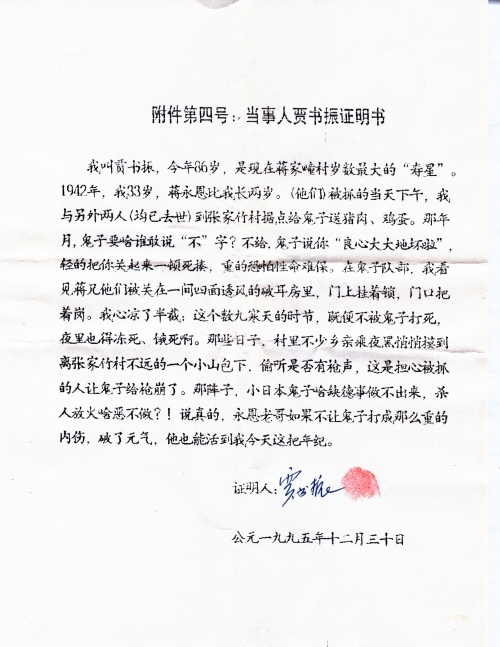 附件第四号：当事人贾书振证明书
我叫贾书振，今年86岁，是现在蒋家疃村岁数最大的“寿星”。
1942年，我33岁，蒋永恩比我长两岁。(他们)被抓的当天下午，我
与另外两人(均已去世)到张家竹村据点给鬼子送猪肉、鸡蛋。那年
月，鬼子要啥谁敢说“不”字？不给，鬼子说你“良心大大地坏啦”，
轻的把你关起来一顿死揍，重的恐怕性命难保。在鬼子队部，我看
见蒋兄他们被关在一间四面透风的破耳房里，门上挂着锁，门口把
着岗。我心凉了半截：这个数九寒天的时节，既便不被鬼子打死，
夜里也得冻死、饿死啊。那些日子，村里不少乡亲乘夜黑悄悄摸到
离张家竹村不远的一个小山包下，偷听是否有枪声，这是担心被抓
的人让鬼子给枪崩了。那阵子，小日本鬼子啥缺德事做不出来，杀
人放火啥恶不做？！说真的，永恩老哥如果不让鬼子打成那么重的
内伤，破了元气，他也能活到我今天这把年纪。
证明人：贾书振
公元一九九五年十二月三十日